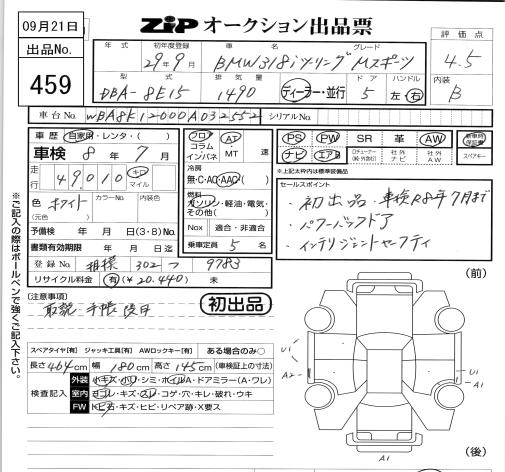 09月21日
ZIP オークション出品票
出品No.
459
年式 初年度登録 車名 グレード 評価点
29年9月 BMW318iツーリング Mスポーツ 4.5
型式 排気量 ドア ハンドル 内装
DBA-8E15 1490 ディーラー・並行 5 左・右 B
車台No. WBA8E12000A032552 シリアルNo.
車歴 自家用・レンタ・( )
車検 8年 7月
走行 49,010 キロ マイル
色 ホワイト カラーNo. 内装色
(元色)
予備検 年 月 日(3・8)No.
書類有効期限 年 月 日迄
登録No. 相模 302 つ 9783
リサイクル料金 有(¥20,440) 未
フロア コラム インパネ AT・MT 速
冷房 無・C・AC・AAC( )
燃料 ガソリン・軽油・電気・その他( )
Nox 適合・非適合
乗車定員 5 名
PS PW SR 革 AW 新車時保証書
ナビ エアB 社外ナビ 社外AW スペアキー
※上記太枠内は標準装備品
セールスポイント
・初出品・車検R8年7月まで
・パワーバックドア
・インテリジェントセーフティ
[注意事項]
取説・手帳後日
初出品
スペアタイヤ[有] ジャッキ工具[有] AWロックキー[有] ある場合のみ○
長さ464cm 幅180cm 高さ145cm(車検証上の寸法)
検査記入
外装 小キズ・小ヘコ・シミ・ホイルA・ドアミラー(A・ワレ)
室内 ヨゴレ・キズ・スレ・コゲ・穴・キレ・破れ・ウキ
FW トビ石・キズ・ヒビ・リペア跡・X要ス
(前)
U1
A2
U1
A1
A1
(後)
※ご記入の際はボールペンで強くご記入下さい。